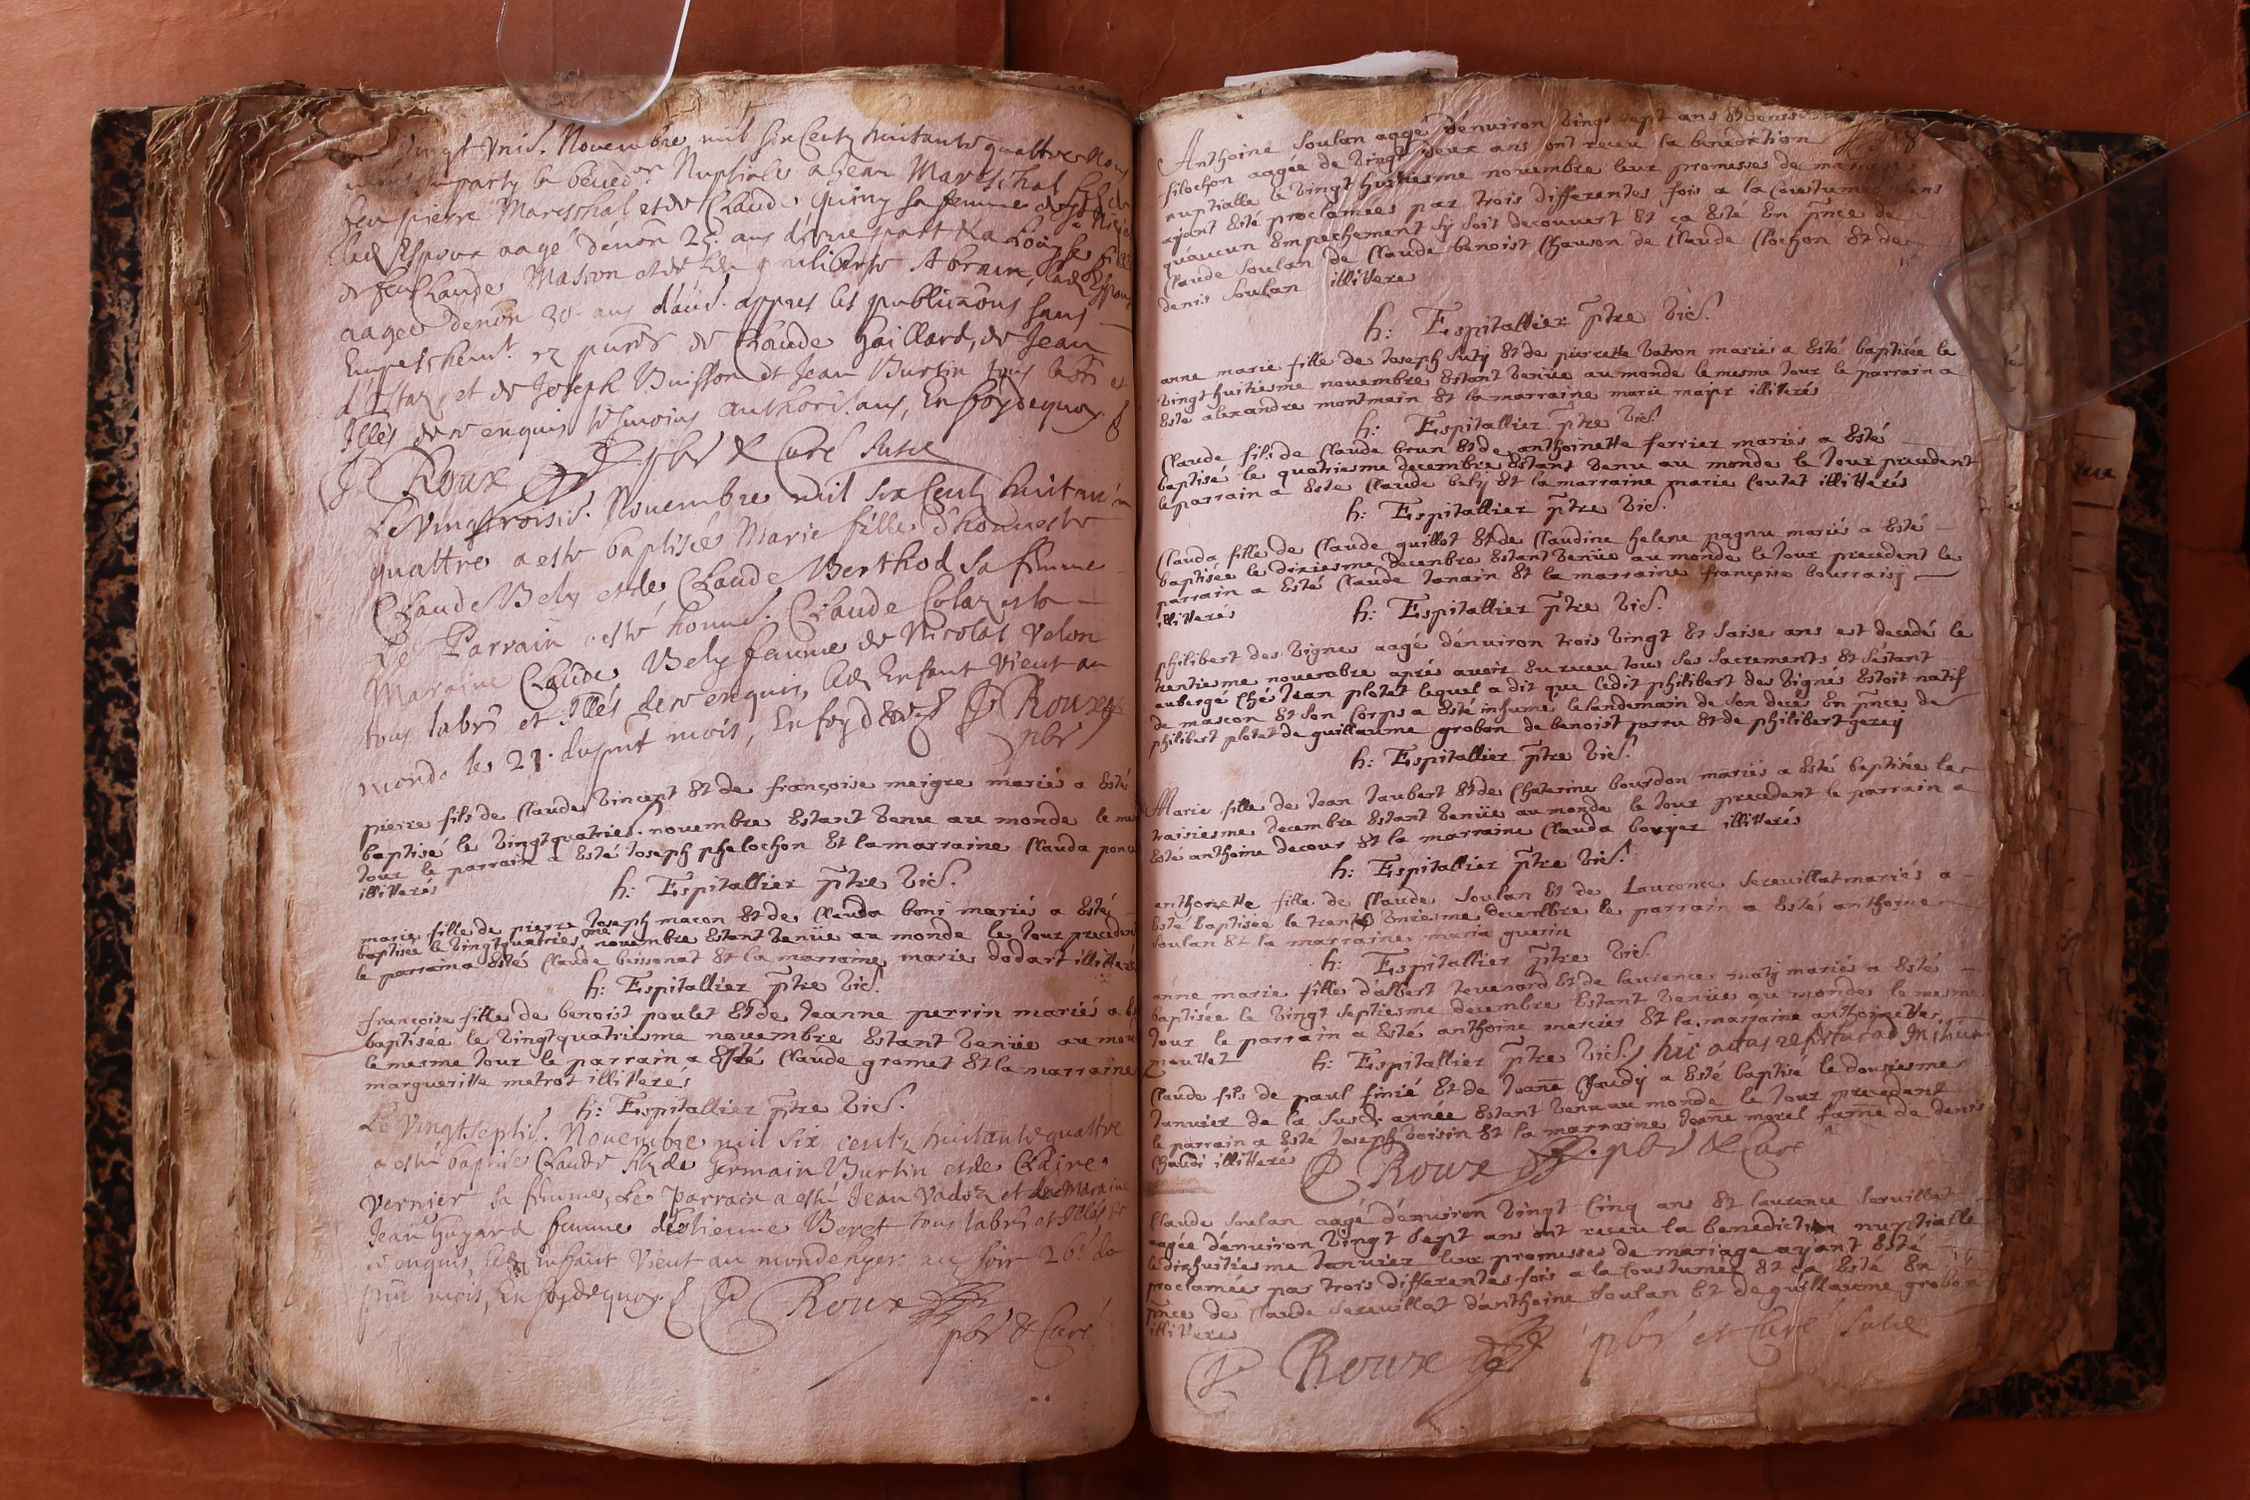 Vingt Vnis. Nouembre mil six Centz huitante quattre Nous
Jmparty la bened.on Nuptiale a Jean Mareschal filz de
feu pierre Mareschal et de Claude Quiny sa femme
led Espoux aagé d'enon 25. ans d'vne part
de feu Claude Masson et de Abram, lad Espouse
aagee denon 30. ans d'aud. appres les publicaõns sans
Empeschemt. ez pnces de Claude Gaillard, de Jean
et de Joseph Buisson et Jean Burtin tous labrs et
Jllés de ce enquis tesmoins authoris. ans, En foy de quoy.
Roux pbr & Curé Susd
Le Vingtroisis. Nouembre mil six Centz huitante
quattre a esté baptisée Marie fille d'honneste
Claude Bely et de Claude Berthod sa femme
Le Parrain a esté honne. Claude Colas et la
Maraine Claude Bely femme de Nicolas Velon
tous labrs et Jllés de ce enquis, led Enfant Vient au
monde le 21. du pnt mois, En foy de quoy Roux
pbr
pierre fils de Claude Vincent Et de françoise meigre mariés a Esté
baptisé le Vingtquatries. nouembre Estant Venu au monde le me
Jour le parrain a Esté Joseph phelochon Et la marraine Clauda ponce
illitterés h: Espitallier ptre Vic.
marie fille de pierre Joseph macon Et de Clauda boni mariés a Esté
baptisée le Vingtquatriesme nouembre Estant Venüe au monde le Jour precedent
le parrain a Esté Claude buissonat Et la marraine marie dodart illitterés
h: Espitallier ptre Vic.
françoise fille de benoist poulet Et de Jeanne perrin mariés a
baptisée le Vingtquatriesme nouembre Estant Venüe au mon
le mesme Jour le parrain a Esté Claude gromet Et la marraine
margueritte metrat illitterés
h: Espitallier ptre Vic.
Le Vingtseptis. Nouembre mil six centz huitante quattre
a esté baptisé Claude filz de Germain Burtin et de Claire
Vernier sa femme, Le Parrain a esté Jean Vadot et la Maraine
Jean Guyard femme d'estienne Beret tous labrs et Jllés de
ce enquis, led enfant Vient au monde hyer au soir 26. du
pnt mois, En foy de quoy. Roux
pbr & Curé
Anthoine Soulan aagé d'enuiron Vingt Sept ans Et denise
filochon aagée de Vingt deux ans ont receu la benediction
nuptialle le Vingt huitiesme nouembre leur promesses de mariage
ayant Esté proclamées par trois differentes fois a la Coustume sans
qu'aucun Empechement sy soit decouuert Et ça Esté En pnce de
Claude Soulan de Claude benoist Chauson de Claude Clochon Et de
denis Soulan illittere
h: Espitallier ptre Vic.
anne marie fille de Joseph Suty Et de pierrette Vabon mariés a Esté baptisée le
Vingt huitiesme nouembre Estant Venüe au monde le mesme Jour le parrain a
Esté alexandre montmain Et la marraine marie majix illitterés
h: Espitallier ptre Vic.
Claude fils de Claude brun Et de anthoinette ferrier mariés a Esté
baptisé le quatriesme decembre Estant Venu au monde le Jour precedent
le parrain a Esté Claude bely Et la marraine marie Coutet illitterés
h: Espitallier ptre Vic.
Clauda fille de Claude guillot Et de Claudine helene pagnu mariés a Esté
baptisée le dixiesme decembre Estant Venüe au monde le Jour precedent le
parrain a Esté Claude Janain Et la marraine françoise bourraisy
illitterés h: Espitallier ptre Vic.
philibert des Vignes aagé d'enuiron trois Vingt Et saise ans est decedé le
trentiesme nouembre aprés auoir Eu receu tous ses sacrements Et sestant
aubergé Chés Jean plotet lequel a dit que Cedit philibert des Vignes Estoit natif
de mascon Et son Corps a Esté inhumé le landemain de son decés En pnce de
philibert plotet de guillaume grobon de benoist perru Et de philibert gerey
h: Espitallier ptre Vic.
Marie fille de Jean Jaubert Et de Chaterine bourdon mariés a Esté baptisée le
traisiesme decembre Estant Venüe au monde le Jour precedent le parrain a
Esté anthoine decour Et la marraine Clauda boyier illitterés
h: Espitallier ptre Vic.
anthonette fille de Claude Soulan Et de Laurence Sereuillat mariés a
Esté baptisée le trente Vniesme decembre le parrain a Esté anthoine
Soulan Et la marraine maria guerin
h: Espitallier ptre Vic.
anne marie fille d'albert Teuenard Et de laurence maty mariés a Esté
baptisée le Vingt septiesme decembre Estant Venüe au monde le mesme
Jour le parrain a Esté anthoine mercier Et la marraine anthoinette
piouttet h: Espitallier ptre Vic.
Claude fils de paul finié Et de Joane Chaudy a Esté baptisé le douziesme
Januier de la susd. année Estant Venu au monde le Jour precedent
le parrain a Esté Joseph Voisin Et la marraine Joane morel fame de denis
Chaudi illitterés Roux pbr & Curé
Claude Soulan aagé d'enuiron Vingt Cinq ans Et laurence Seruillat
aagée d'enuiron Vingt Sept ans ont receu la benediction nuptialle
le dixhuitiesme Januier leur promesses de mariage ayant Esté
proclamées par trois differentes fois a la Coustume Et ça Esté En
pnce de Claude Sereuillat d'anthoine Soulan Et de guillaume grobon
illitteres
Roux pbr et Curé Susd